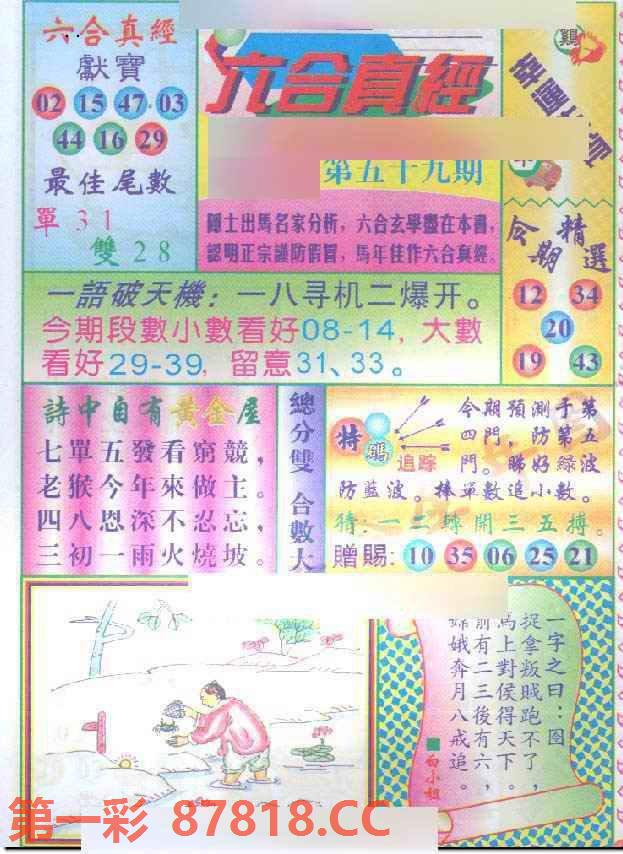 六合真經
獻寶
02 15 47 03
44 16 29
最佳尾數
單 31
雙 28
六合真經
第五十九期
隱士出馬名家分析，六合玄學盡在本書，
認明正宗謹防假冒，馬年佳作六合真經。
今期精選
12 34
20
19 43
一語破天機：一八寻机二爆开。
今期段數小數看好08-14，大數
看好29-39，留意31、33。
詩中自有黃金屋
七單五發看窮競，
老猴今年來做主。
四八恩深不忍忘，
三初一雨火燒坡。
總分雙 合數大
特碼
追踪
今期預測于第
四門，防第五
門。睇好綠波
防藍波。捧單數追小數。
猜：一二球開三五搏。
贈賜：10 35 06 25 21
一字之曰：图
捉拿叛賊跑不了，
馬上對侯得天下。
前有二三後有六，
娥奔月八戒追。
白小姐
第一彩 87818.CC